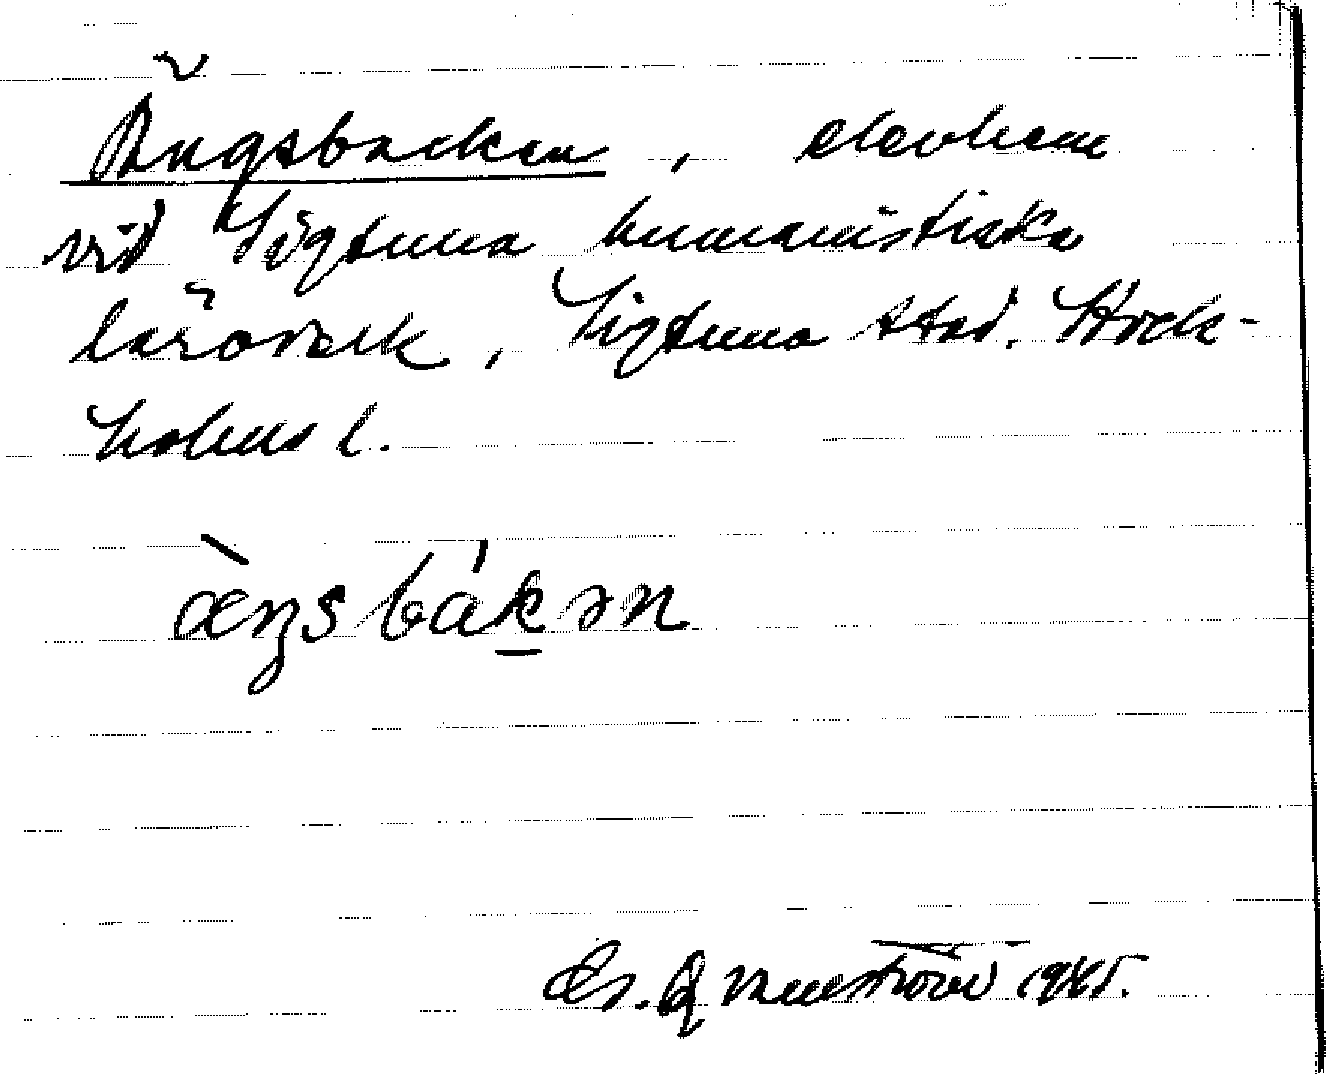 Ängsbacken, elevhem
vid Sigtuna humanistiska
läroverk, Sigtuna stad. Stock-
holms l.
æ̀ŋsbák̠ən
1945.